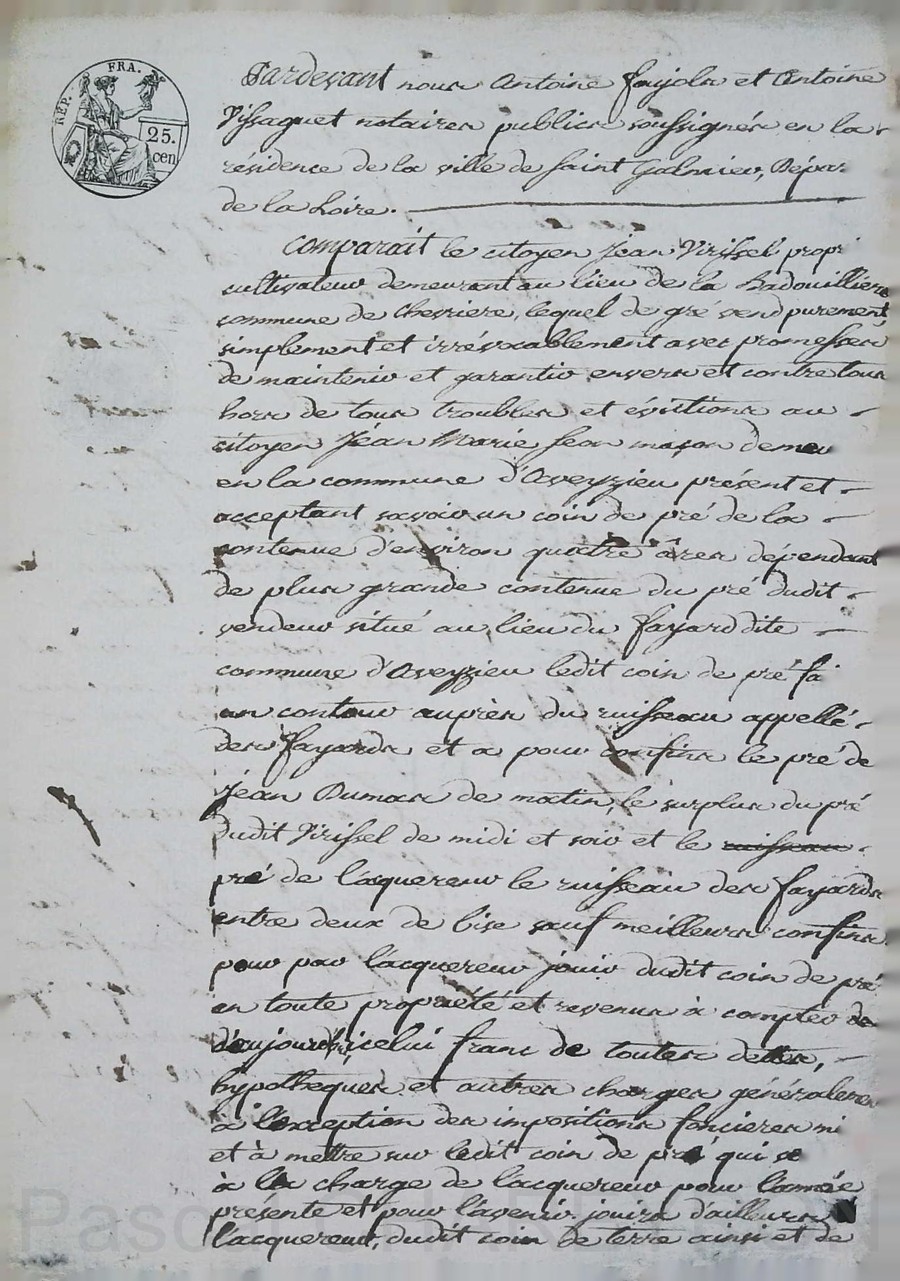 RÉP. FRA.
25.
cen
Pardevant nous Antoine fayols et Antoine
Vissaguet notaires publics soussignés en la
résidence de la ville de Saint Galmier, Dépar.
de la Loire.
Comparait le citoyen Jean Virissel propr
cultivateur demeurant au lieu de la Badouillière
commune de chevriere, lequel de gré vend purement,
simplement et irrévocablement avec promesses
de maintenir et garantir envers et contre tous
hors de tous troubles et évictions au
citoyen Jean Marie Jean maçon demeu
en la commune d'Aveyzieu présent et
acceptant savoir un coin de pré de la
contenue d'environ quatre ares dépendant
de plus grande contenue du pré dudit
vendeur situé au lieu du fayard dite
commune d'Aveyzieu ledit coin de pré fa
un contour auprès du ruisseau appellé
des fayards et a pour confins le pré de
Jean Dumas de matin, le surplus du pré
dudit Virissel de midi et soir et le ruisseau
pré de l'acquereur le ruisseau des fayards
entre deux de bise sauf meilleurs confins
pour par l'acquereur jouir dudit coin de pré
en toute propriété et revenus à compter de
d'aujourd'hui, icelui franc de toutes dettes,
hypotheques et autres charges généralemen
à l'exception des impositions foncieres mi
et à mettre sur ledit coin de pré qui se
à la charge de l'acquereur pour l'année
présente et pour l'avenir jouira d'ailleurs
l'acquereur, dudit coin de terre ainsi et de